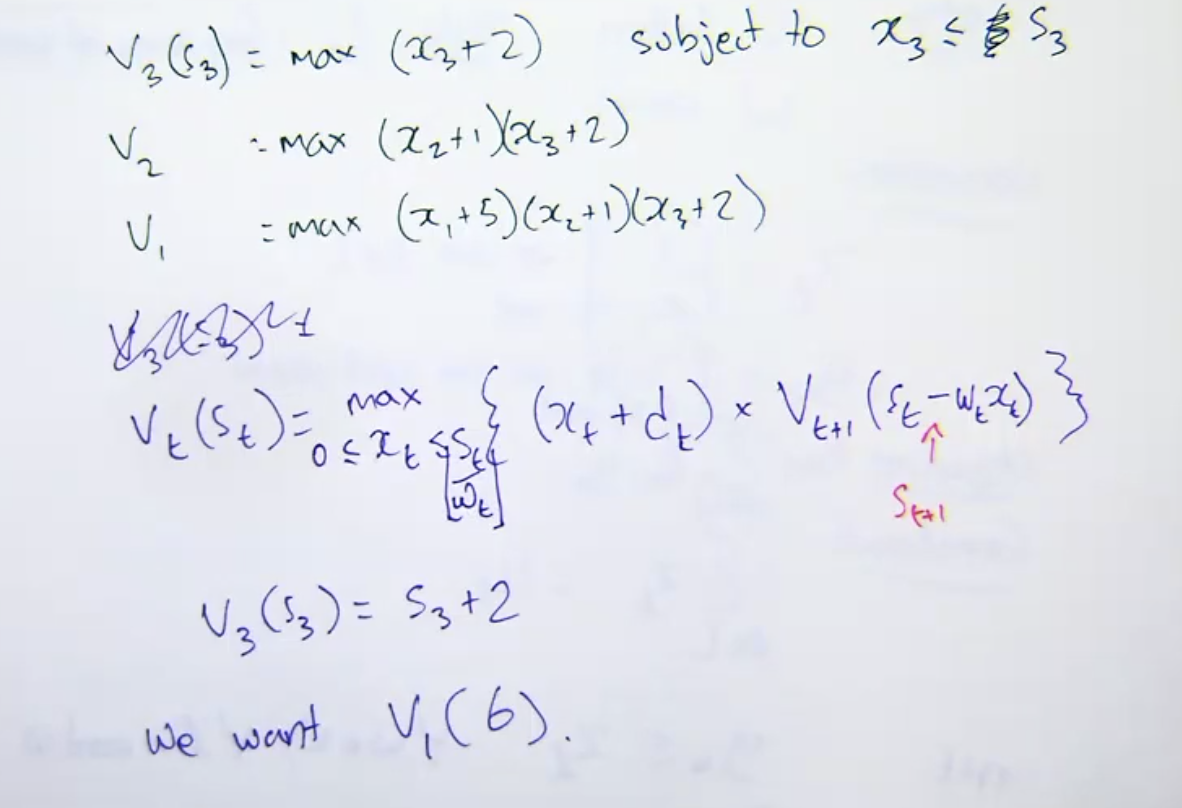 V₃(s₃) = max (x₃+2) subject to x₃ ≤ s₃
V₂ = max (x₂+1)(x₃+2)
V₁ = max (x₁+5)(x₂+1)(x₃+2)
Vₜ(sₜ) = max 0 ≤ xₜ ≤ ⌊sₜ/wₜ⌋ { (xₜ + dₜ) × Vₜ₊₁(sₜ - wₜxₜ) }
↑
sₜ₊₁
V₃(s₃) = s₃+2
we want V₁(6).